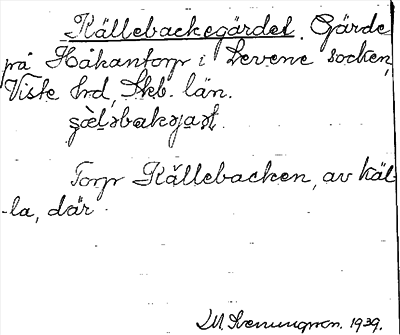 Källebackegärdet. Gärde
på Håkantorp i Levene socken,
Viste hrd, Skb. län.
Torp Källebacken, av käl-
la, där.
1939.